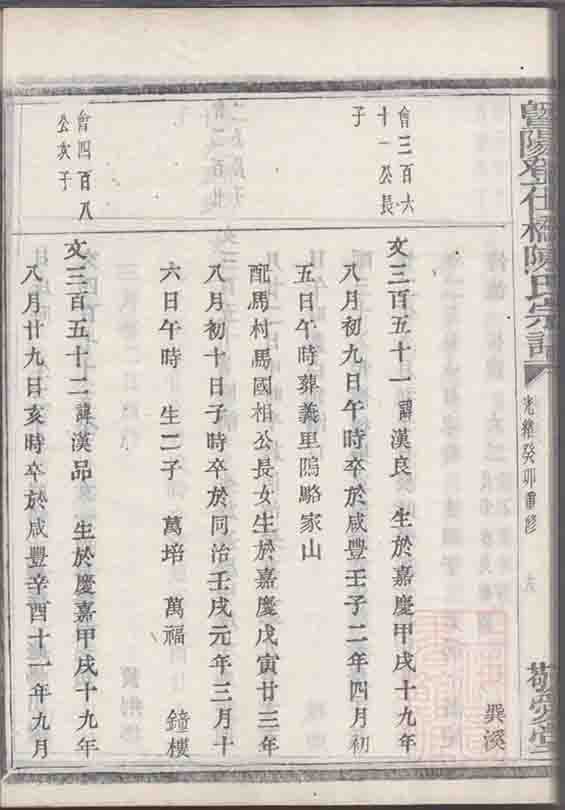 暨陽孝仕橋陳氏宗譜
光緒癸卯重修
六
敬愛堂
巽溪
會三百六
十一公長
子
文三百五十一 諱漢良 生於嘉慶甲戌十九年
八月初九日午時卒於咸豐壬子二年四月初
五日午時葬義里隖略家山
配馬村馬國相公長女生於嘉慶戊寅廿三年
八月初十日子時卒於同治壬戌元年三月十
六日午時 生二子 萬培 萬福
鐘樓
會四百八
公次子
文三百五十二 諱漢品 生於慶嘉甲戌十九年
八月廿九日亥時卒於咸豐辛酉十一年九月